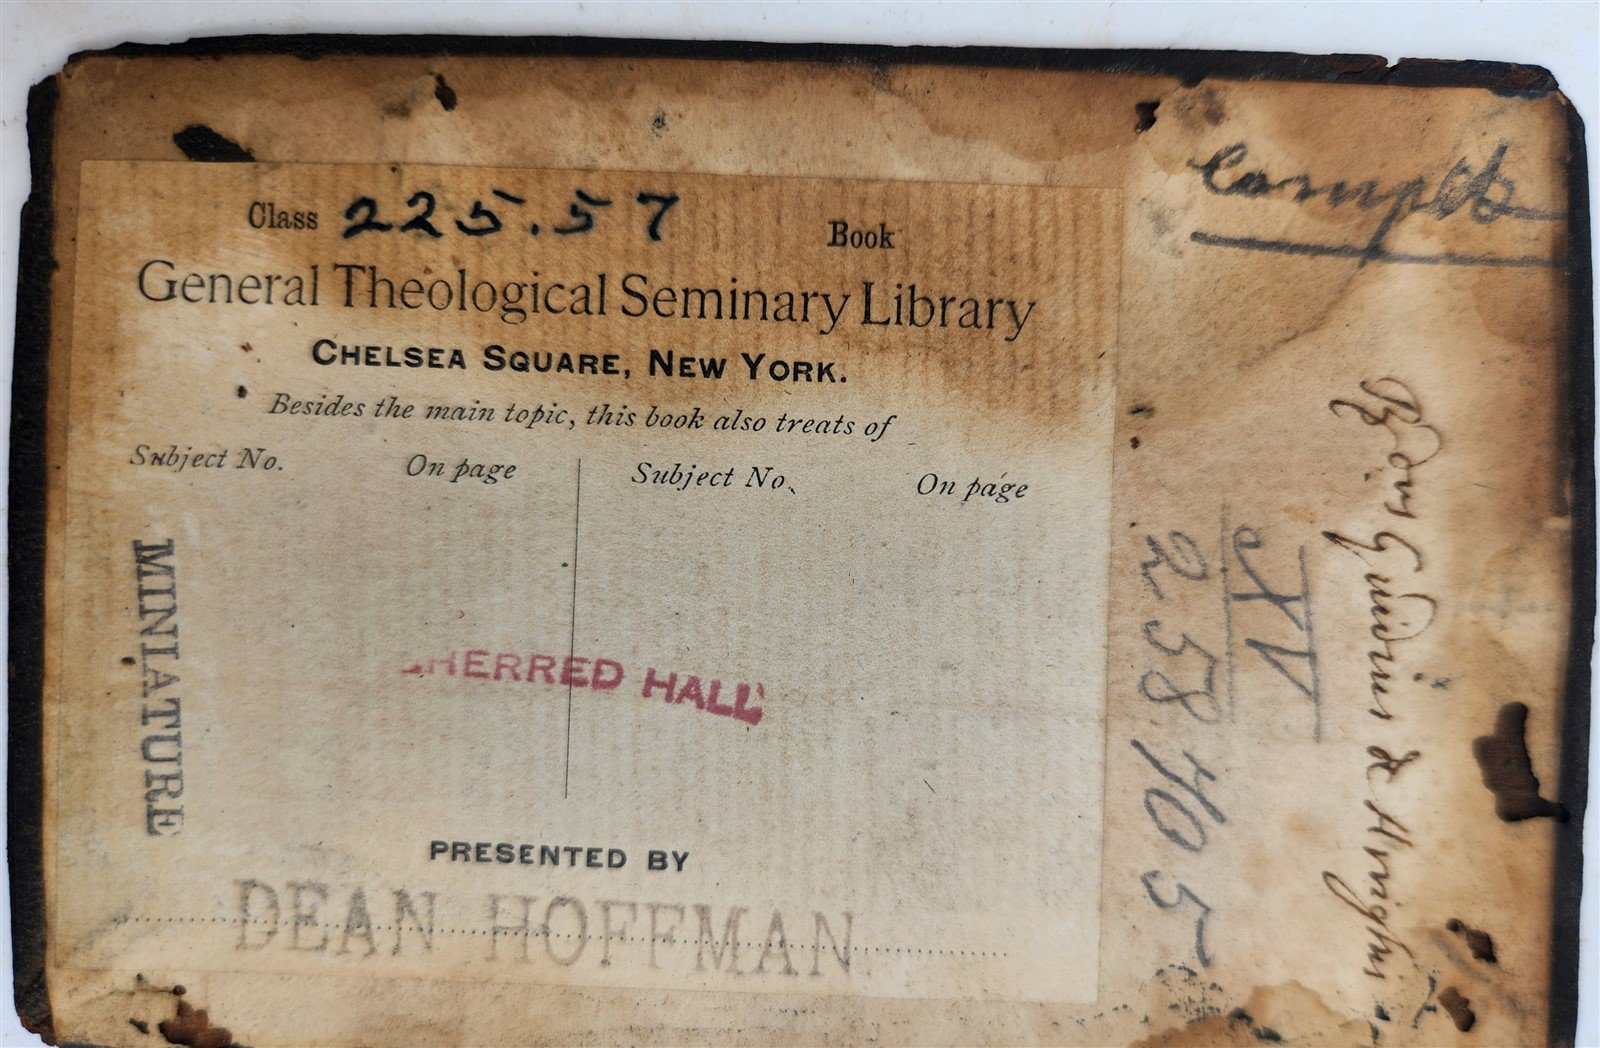 Class 225.57 Book
General Theological Seminary Library
CHELSEA SQUARE, NEW YORK.
Besides the main topic, this book also treats of
Subject No. On page Subject No. On page
MINIATURE
HERRED HALL
PRESENTED BY
DEAN HOFFMAN
XV
258405